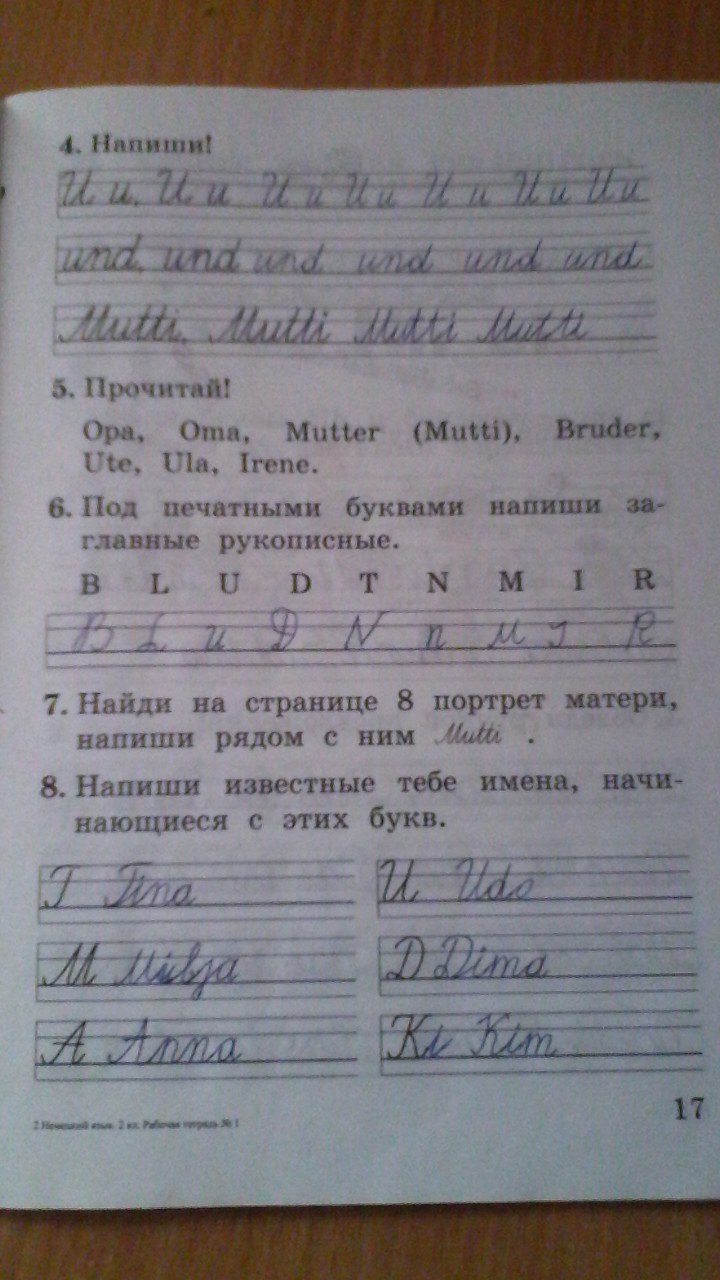 4. Напиши!
U u, U u U u U u U u U u U u
und, und und und und und
Mutti, Mutti Mutti Mutti
5. Прочитай!
Opa, Oma, Mutter (Mutti), Bruder,
Ute, Ula, Irene.
6. Под печатными буквами напиши за-
главные рукописные.
B L U D T N M I R
B L u D N n M I R
7. Найди на странице 8 портрет матери,
напиши рядом с ним Mutti .
8. Напиши известные тебе имена, начи-
нающиеся с этих букв.
T Tina U Udo
M D Dima
A Anna Ki Kim
17
2 Немецкий язык. 2 кл. Рабочая тетрадь № 1